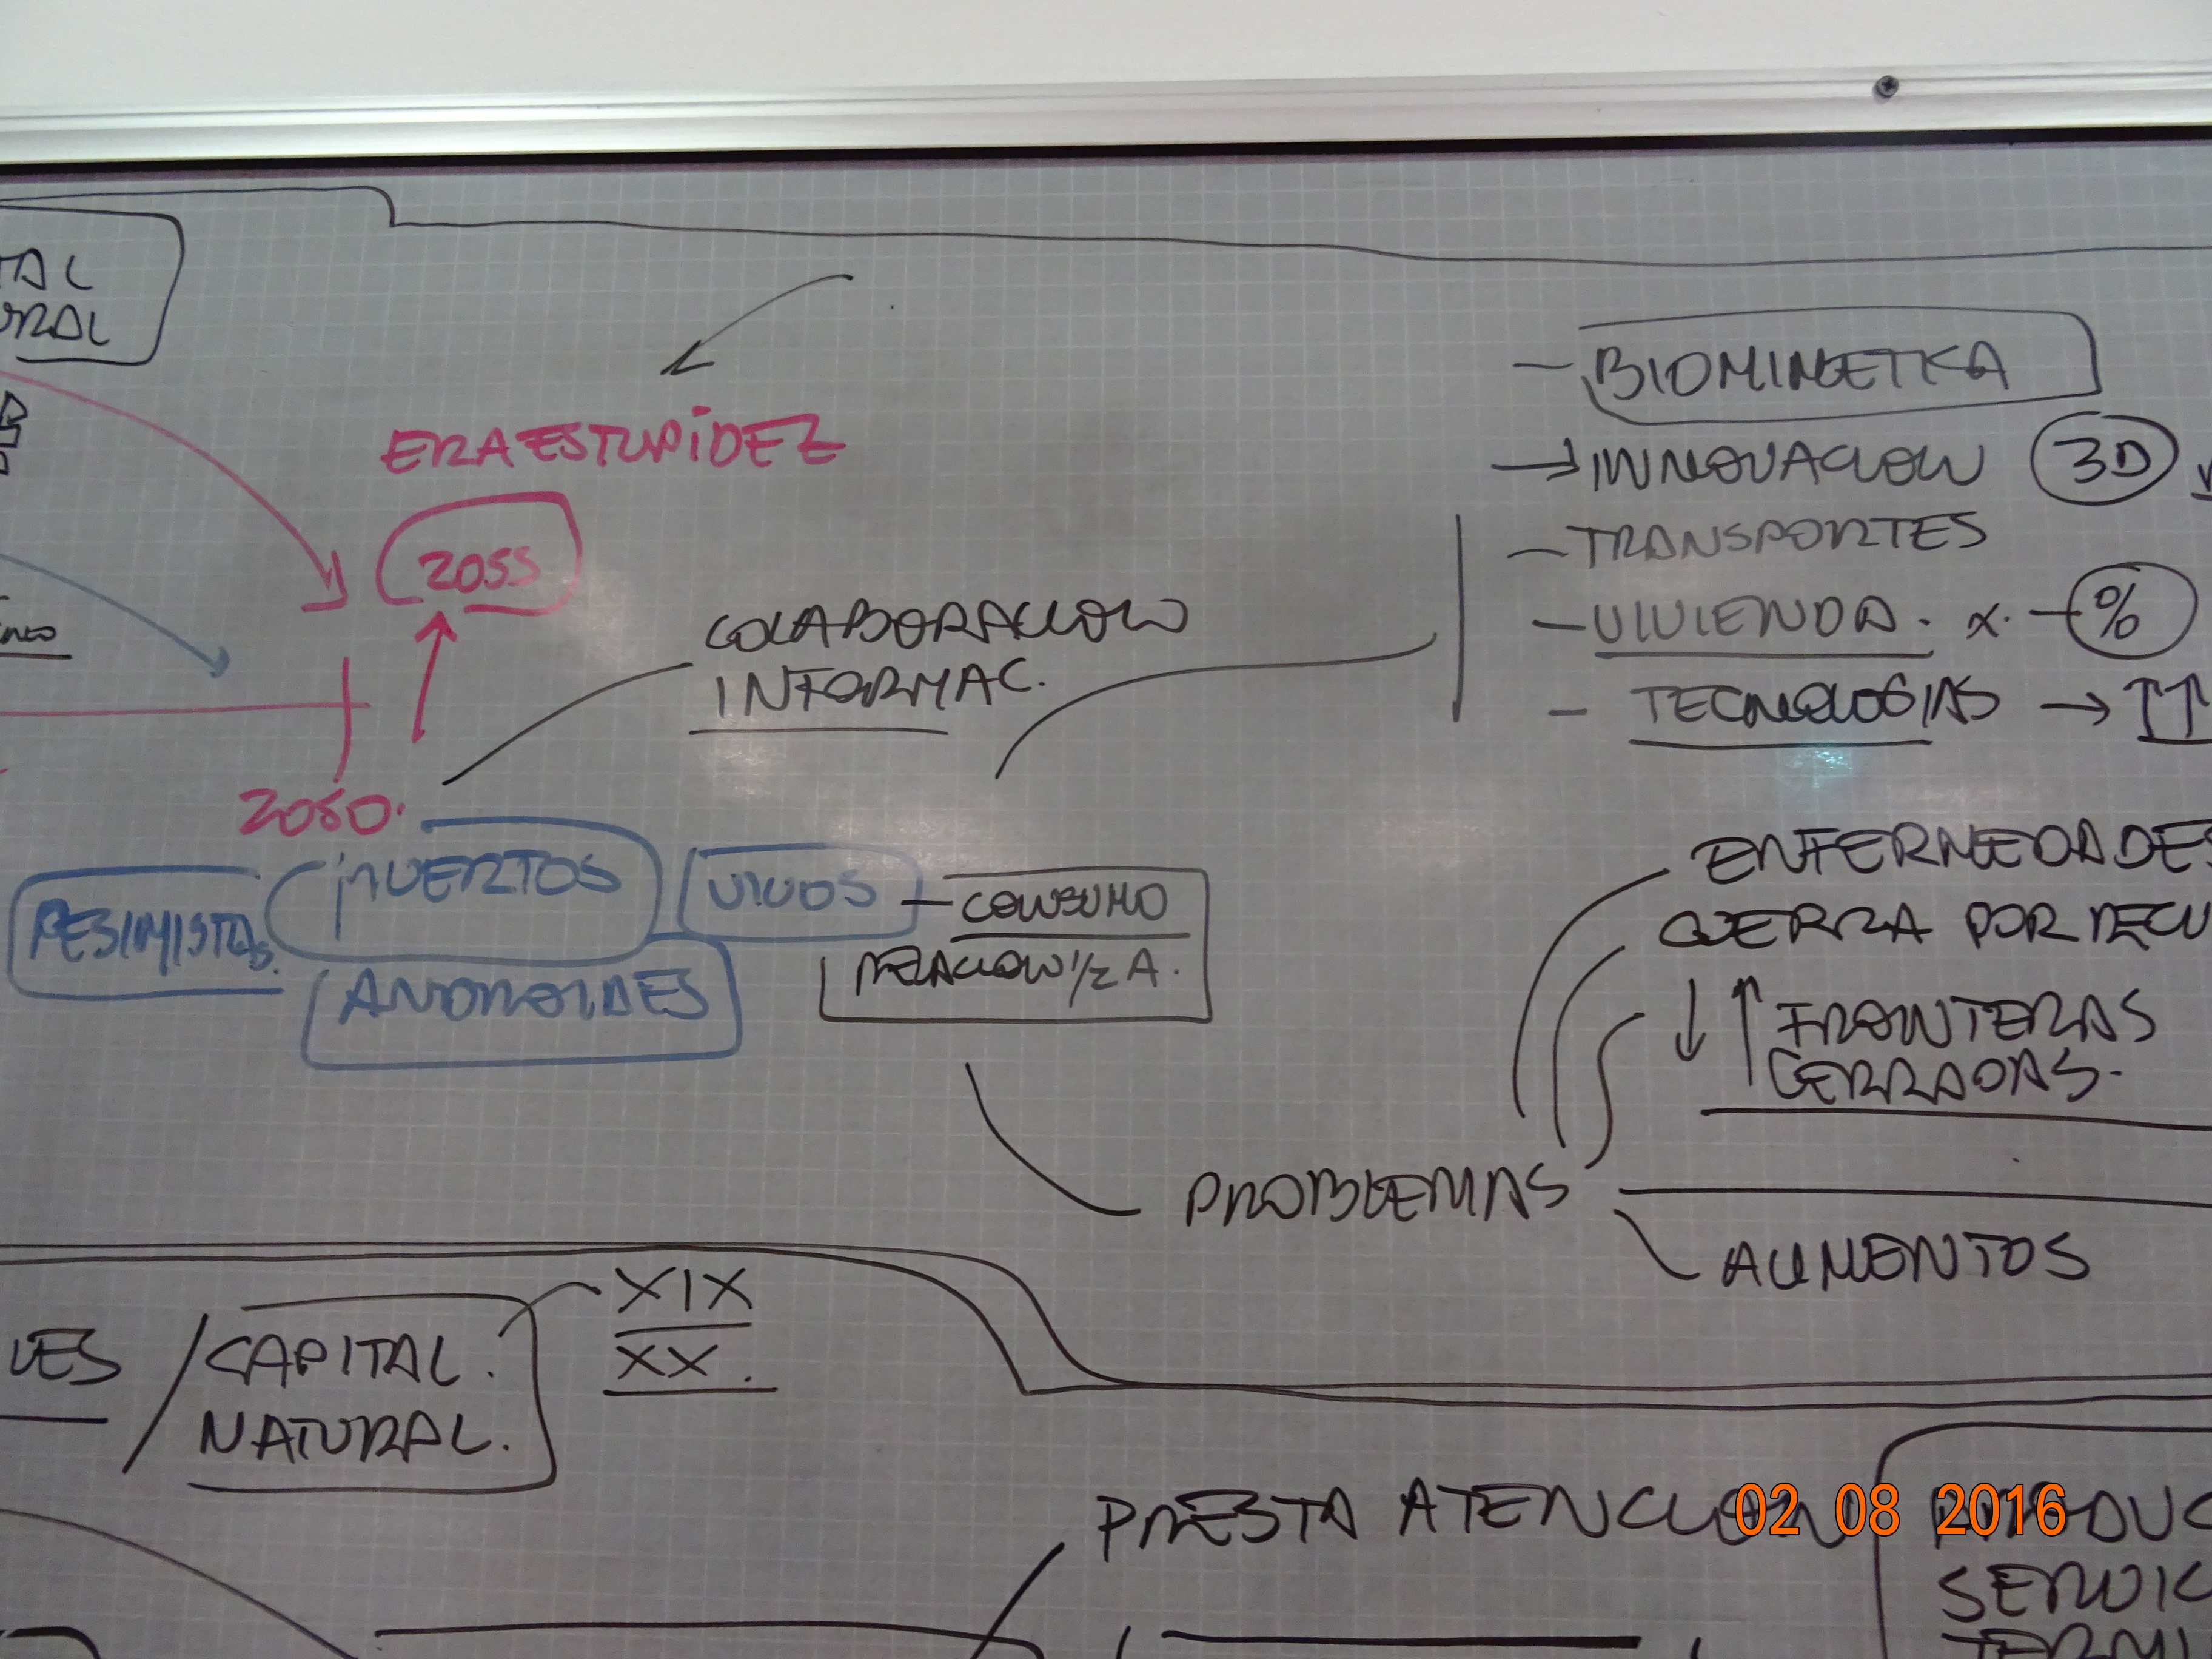 ERA ESTUPIDEZ
2055
2050.
COLABORACION
INFORMAC.
PESIMISTAS.
MUERTOS
VIVOS
ANDROIDES
CONSUMO
RELACION 1/2 A.
- BIOMIMETICA
→ INNOVACION 3D
- TRANSPORTES
- VIVIENDA. x. - %
- TECNOLOGIAS → ↑↑
ENFERMEDADES
GUERRA POR RECU
↓ ↑ FRONTERAS
CERRADAS.
PROBLEMAS
ALIMENTOS
VES
CAPITAL.
NATURAL.
XIX
XX.
PRESTA ATENCION
PRODUC
SERVIC
TERMI
02 08 2016